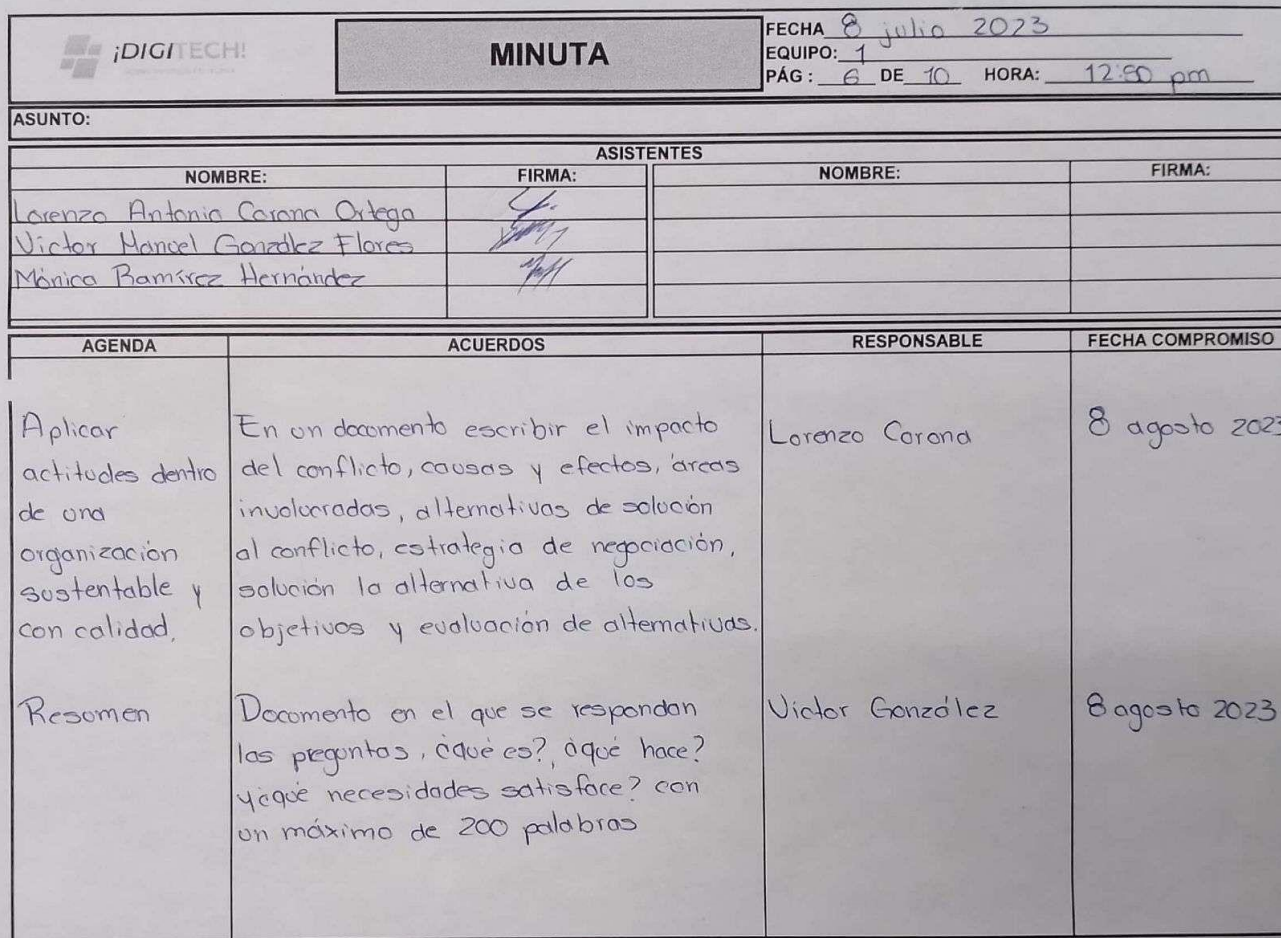 ¡DIGITECH!
MINUTA
FECHA 8 julio 2023
EQUIPO: 1
PÁG : 6 DE 10 HORA: 12:50 pm
ASUNTO:
ASISTENTES
NOMBRE: FIRMA: NOMBRE: FIRMA:
Lorenzo Antonio Corona Ortega
Victor Manuel González Flores
Mónica Ramírez Hernández
AGENDA ACUERDOS RESPONSABLE FECHA COMPROMISO
Aplicar
actitudes dentro
de una
organización
sustentable y
con calidad.
En un documento escribir el impacto
del conflicto, causas y efectos, áreas
involucradas, alternativas de solución
al conflicto, estrategia de negociación,
solución la alternativa de los
objetivos y evaluación de alternativas.
Lorenzo Corona
8 agosto 2023
Resumen
Documento en el que se respondan
las preguntas, ¿qué es?, ¿qué hace?
y ¿qué necesidades satisface? con
un máximo de 200 palabras
Victor González
8 agosto 2023